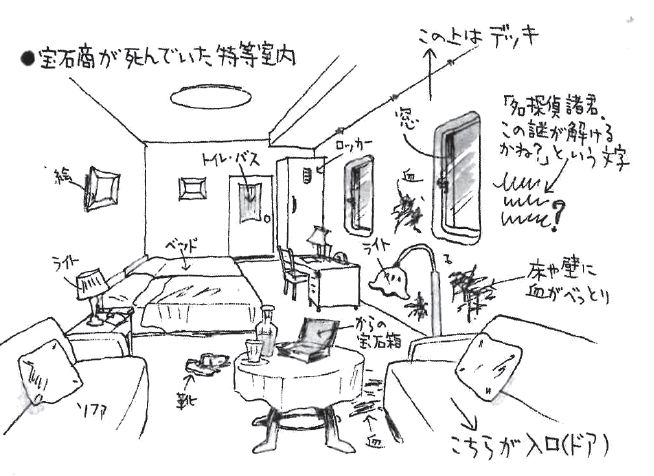 ●宝石商が死んでいた特等室内
この上は デッキ
「名探偵諸君、
この謎が解ける
かね?」という文字
窓
ロッカー
トイレ・バス
血
絵
ベッド
ライト
ライト
床や壁に
血がべっとり
からの
宝石箱
靴
ソファ
血
こちらが入口(ドア)
?